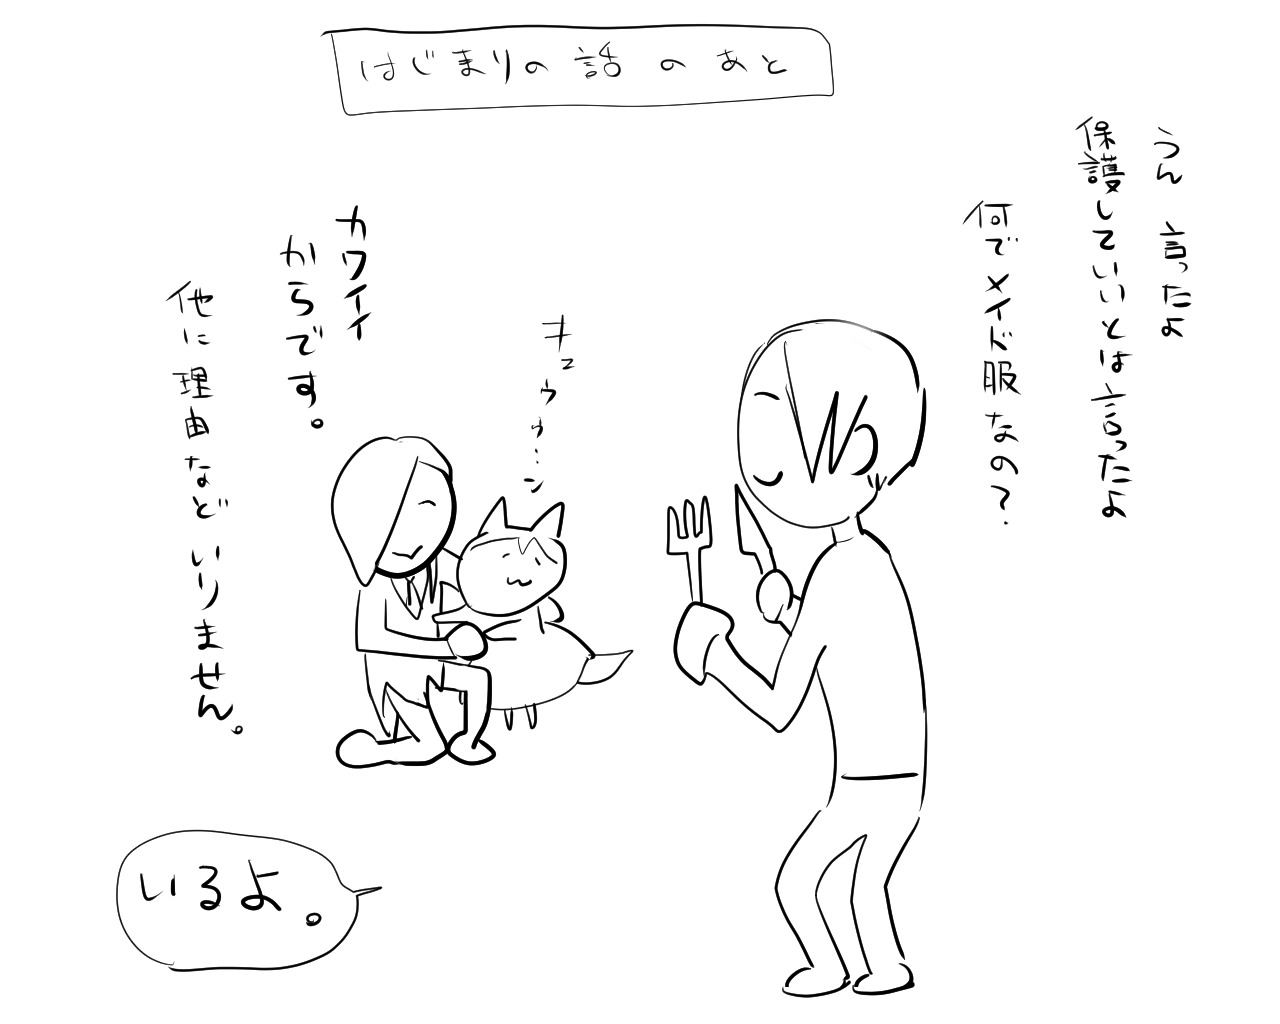 はじまりの話のあと
うん 言ったよ
保護していいとは言ったよ
何でメイド服なの？
キュゥゥ…ン
カワイイ
からです。
他に理由などいりません。
いるよ。